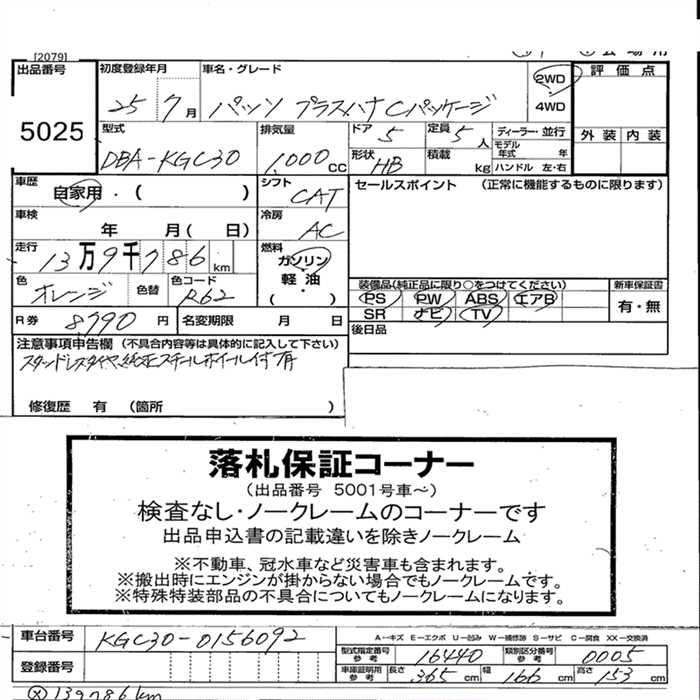 [2079]
出品番号 5025
初度登録年月 25 7月
車名・グレード パッソ プラスハナCパッケージ
2WD 4WD
評価点
型式 DBA-KGC30
排気量 1,000cc
ドア 5 定員 5人
形状 HB 積載 kg
ディーラー・並行
モデル年式 年
ハンドル 左・右
外装 内装
車歴 自家用・( )
シフト CAT
セールスポイント (正常に機能するものに限ります)
車検 年 月( 日)
冷房 AC
走行 13万9千786km
燃料 ガソリン・軽油・( )
色 オレンジ 色替 色コード R62
装備品(純正品に限り○をつけてください) 新車保証書
PS PW ABS エアB 有・無
SR ナビ TV
R券 8,790円 名変期限 月 日
後日品
注意事項申告欄 (不具合内容等は具体的に記入して下さい)
スタッドレスタイヤ、純正スチールホイール付有
修復歴 有 (箇所 )
落札保証コーナー
(出品番号 5001号車~)
検査なし・ノークレームのコーナーです
出品申込書の記載違いを除きノークレーム
※不動車、冠水車など災害車も含まれます。
※搬出時にエンジンが掛からない場合でもノークレームです。
※特殊特装部品の不具合についてもノークレームになります。
車台番号 KGC30-0156092
A-キズ E-エクボ U-凹み W-補修跡 S-サビ C-腐食 XX-交換済
登録番号
型式指定番号参考 16440 類別区分番号参考 0005
車庫証明用参考 長さ 365cm 幅 166cm 高さ 153cm
Ⓧ139786km